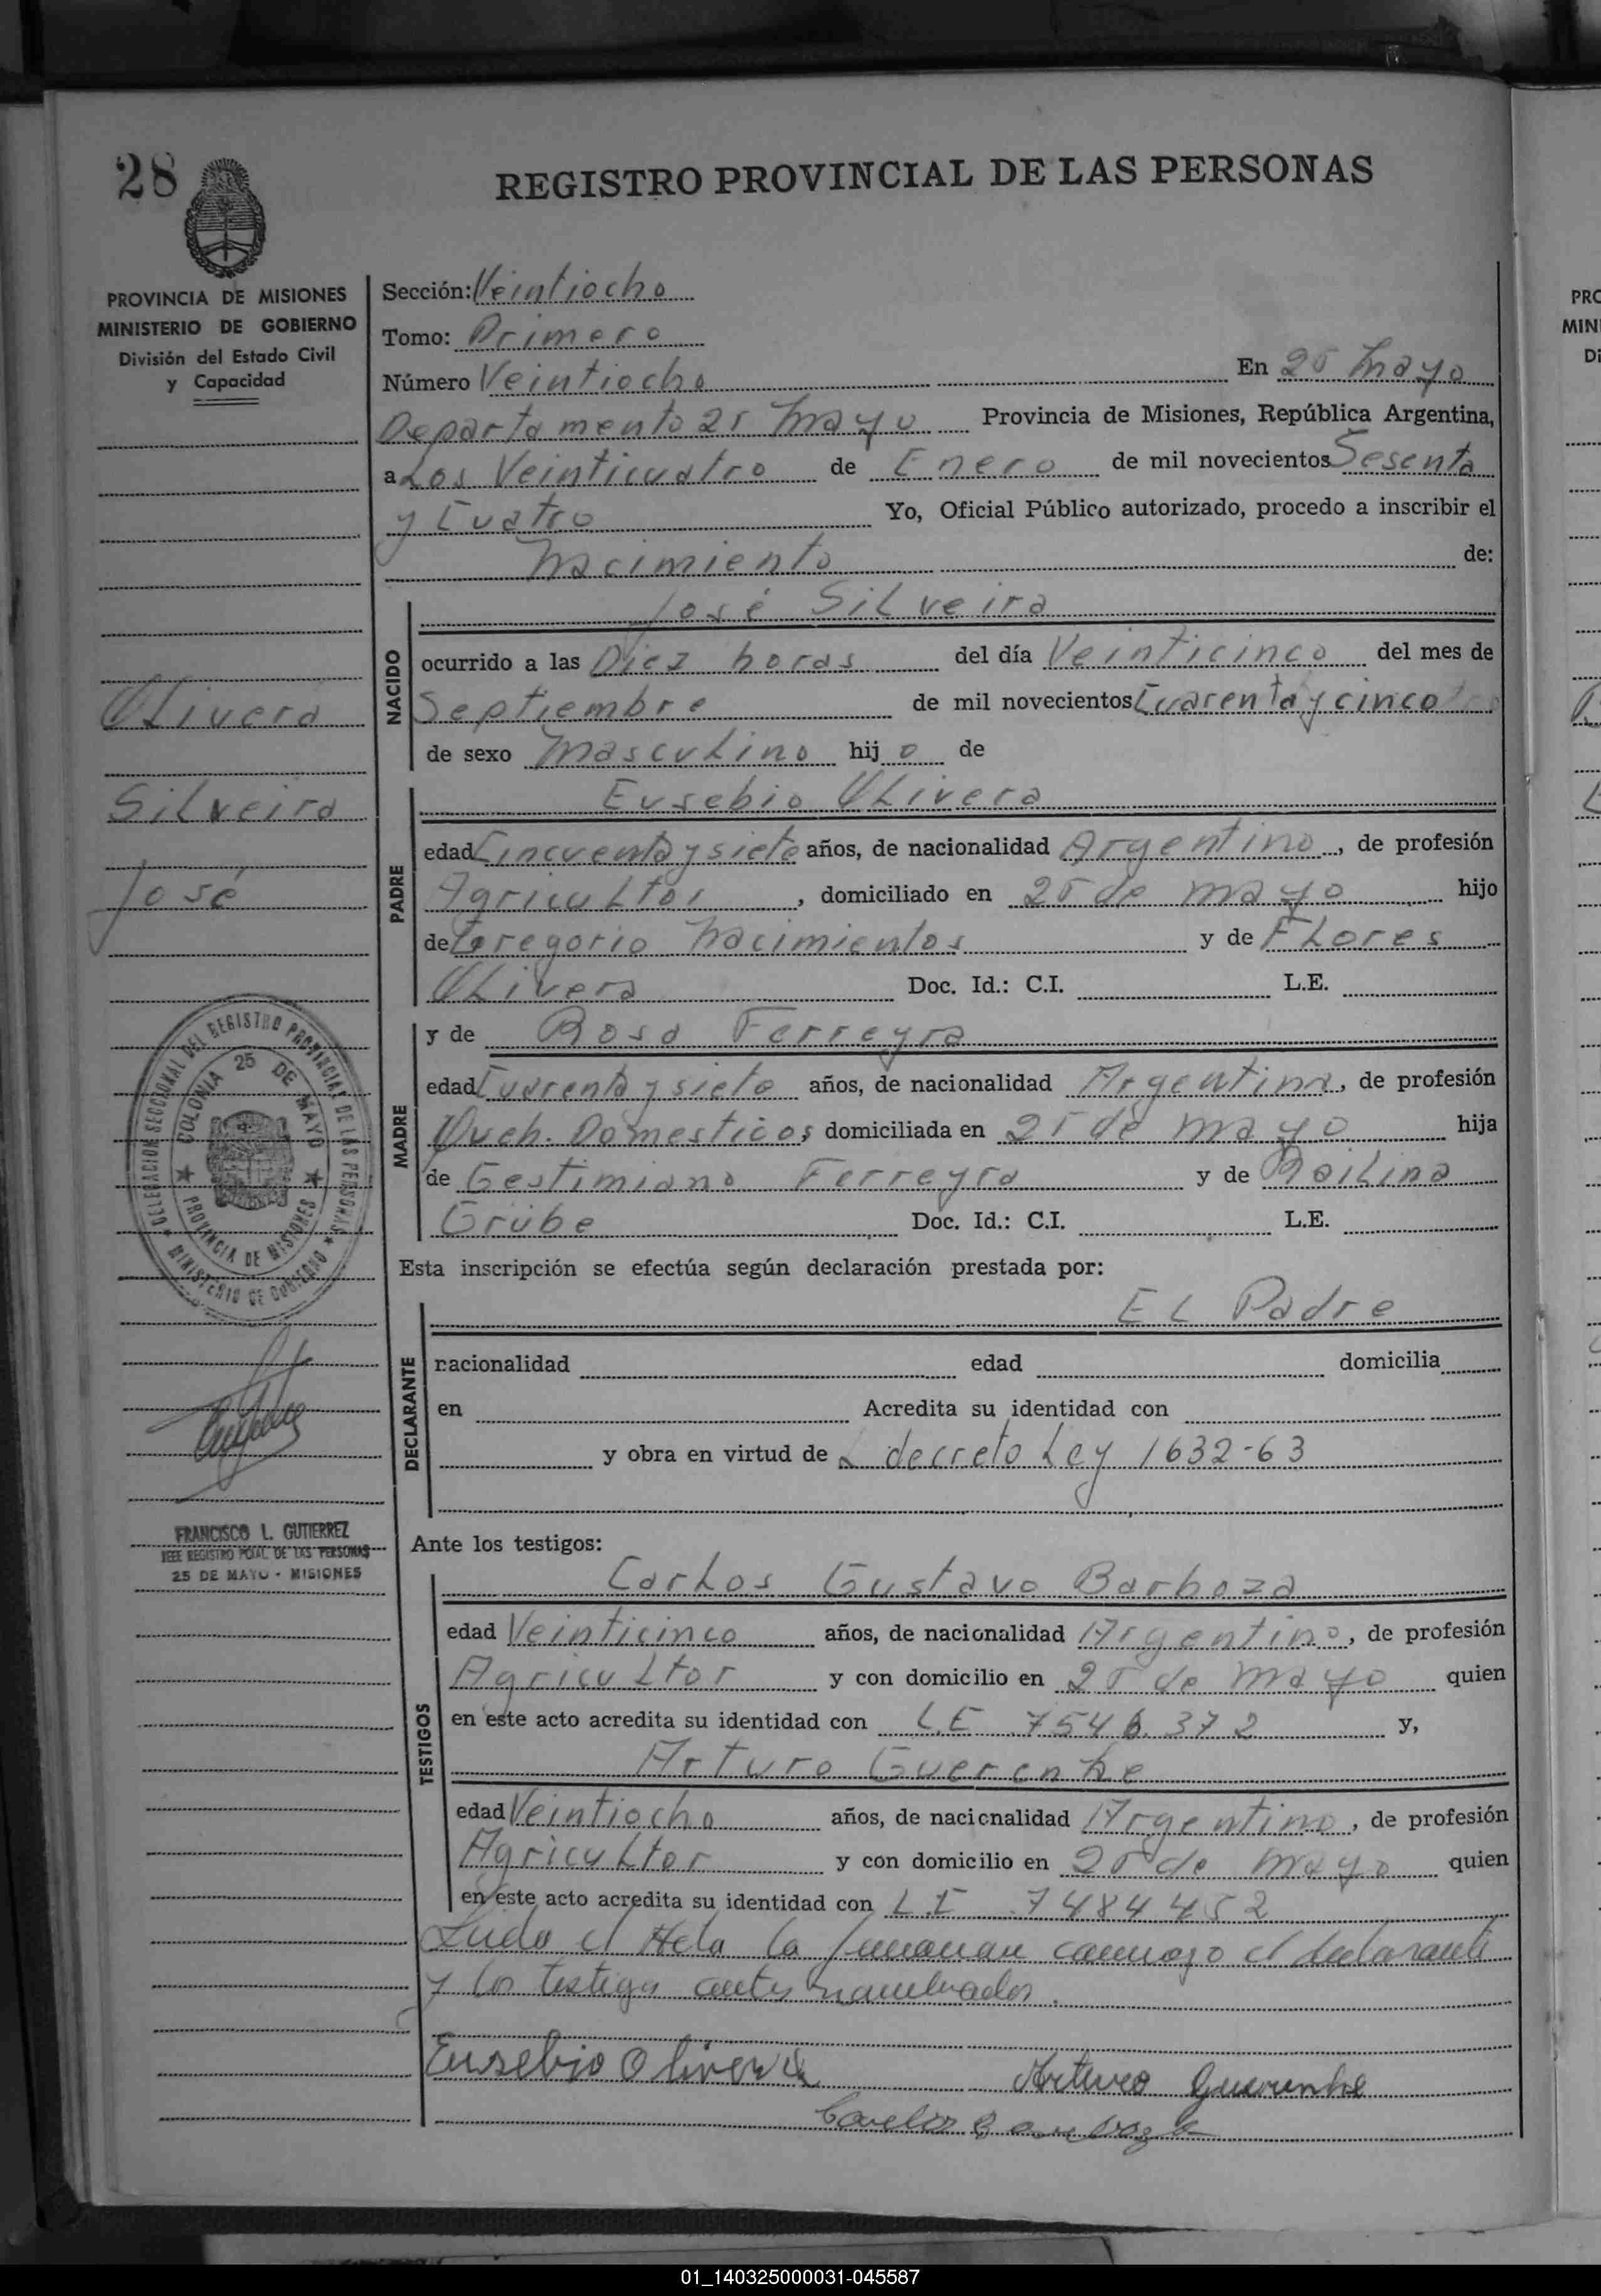 28
REGISTRO PROVINCIAL DE LAS PERSONAS
PROVINCIA DE MISIONES
MINISTERIO DE GOBIERNO
División del Estado Civil
y Capacidad
Sección: Veintiocho
Tomo: Primero
Número Veintiocho En 25 Mayo
Departamento 25 Mayo Provincia de Misiones, República Argentina,
a Los Veinticuatro de Enero de mil novecientos Sesenta
y Cuatro Yo, Oficial Público autorizado, procedo a inscribir el
Nacimiento de:
José Silveira
NACIDO
ocurrido a las Diez horas del día Veinticinco del mes de
Septiembre de mil novecientos Cuarenta y cinco
de sexo Masculino hijo de
Olivera
Silveira
José
PADRE
Eusebio Olivera
edad Cincuenta y siete años, de nacionalidad Argentino, de profesión
Agricultor, domiciliado en 25 de Mayo hijo
de Gregorio Nacimientos y de Flores
Olivera Doc. Id.: C.I. L.E.
MADRE
y de Rosa Ferreyra
edad Cuarenta y siete años, de nacionalidad Argentina, de profesión
Queh. Domesticos, domiciliada en 25 de Mayo hija
de Ferreyra y de
Grube Doc. Id.: C.I. L.E.
DELEGACION SECCIONAL DEL REGISTRO PROVINCIAL DE LAS PERSONAS
MINISTERIO DE GOBIERNO
COLONIA 25 DE MAYO
PROVINCIA DE MISIONES
Esta inscripción se efectúa según declaración prestada por:
El Padre
DECLARANTE
nacionalidad edad domicilia
en Acredita su identidad con
y obra en virtud de decreto Ley 1632-63
FRANCISCO L. GUTIERREZ
JEFE REGISTRO PCIAL. DE LAS PERSONAS
25 DE MAYO - MISIONES
Ante los testigos:
TESTIGOS
Carlos Gustavo Barboza
edad Veinticinco años, de nacionalidad Argentino, de profesión
Agricultor y con domicilio en 25 de Mayo quien
en este acto acredita su identidad con L.E 7546.372 y,
Arturo Guerenhe
edad Veintiocho años, de nacionalidad Argentino, de profesión
Agricultor y con domicilio en 25 de Mayo quien
en este acto acredita su identidad con L.E 7484452
el Acta la conmigo el declarante
y los testigos antes nombrados.
Eusebio Olivera
Arturo Guerenhe
Carlos G Barboza
01_140325000031-045587